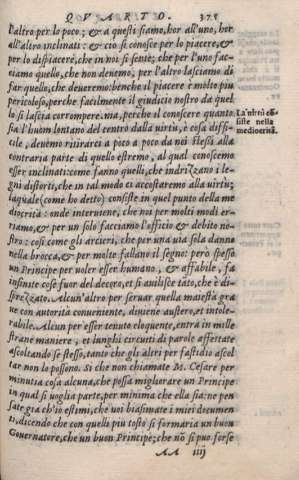 QVARTO. 375
l'altro per lo poco; & a questi siamo, hor all'uno, hor
all'altro inclinati: & ciò si conosce per lo piacere, &
per lo dispiacere, che in noi si sente; che per l'uno fac-
ciamo quello, che non deuemo, per l'altro lasciamo di
far quello, che deueremo: benche il piacere è molto piu
pericoloso, perche facilmente il giudicio nostro da quel
lo si lascia corrompere. ma, perche il conoscere quanto
sia l'huom lontano del centro dalla uirtù, è cosa diffi-
cile, deuemo ritirarci a poco a poco da noi stessi alla
contraria parte di quello estremo, al qual conoscemo
esser inclinati: come fanno quelli, che indrizzano i le-
gni distorti, che in tal modo ci accostaremo alla uirtù;
laquale (come ho detto) consiste in quel punto della me
diocrità: onde interuiene, che noi per molti modi er-
riamo, & per un solo facciamo l'officio & debito no-
stro: così come gli arcieri, che per una uia sola danno
nella brocca, & per molte fallano il segno: però spesso
un Principe per uoler esser humano, & affabile, fa
infinite cose fuor del decoro, et si auilisce tāto, che è di-
sprezzato. Alcun'altro per seruar quella maiestà gra
ue con autorità conueniente, diuiene austero, et intole-
rabile. Alcun per esser tenuto eloquente, entra in mille
strane maniere, et lunghi circuiti di parole affettate
ascoltando se stesso, tanto che gli altri per fastidio ascol
tar non lo possono. Sì che non chiamate M. Cesare per
minutia cosa alcuna, che possa migliorare un Principe
in qual si uoglia parte, per minima che ella sia: ne pen
sate già ch'io estimi, che uoi biasimate i miei documen
ti, dicendo che con quelli più tosto si formaria un buon
Gouernatore, che un buon Principe; che nō si può forse
AA iiij
La uirtù cō
siste nella
mediocrità.